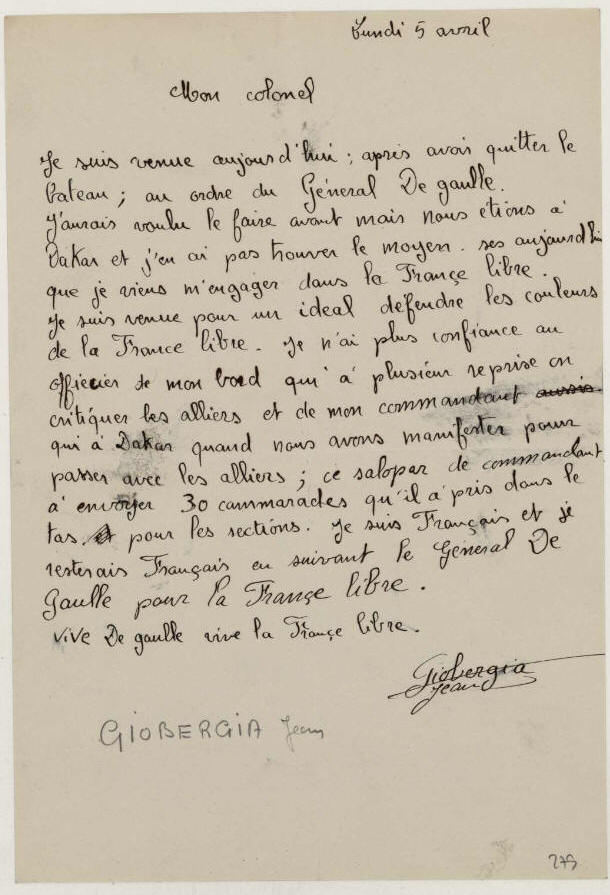 Lundi 5 avril
Mon colonel
Je suis venue aujourd'hui ; après avoir quitter le
bateau ; au ordre du Géneral De gaulle.
J'aurais voulu le faire avant mais nous étions à
Dakar et j'en ai pas trouver le moyen. ses aujourd'hui
que je viens m'engager dans la Françe libre.
Je suis venue pour un ideal défendre les couleurs
de la France libre. Je n'ai plus confiance au
officier de mon bord qui à plusieur reprise on
critiquer les alliers et de mon commandant aussis
qui à Dakar quand nous avons manifester pour
passer avec les alliers ; ce salopar de commandant
à envoyer 30 cammarades qu'il à pris dans le
tas. et pour les sections. Je suis Français et je
resterais Français en suivant le Géneral De
Gaulle pour la Françe libre.
vive De gaulle vive la Françe libre.
Giobergia
Jean
GIOBERGIA Jean
275